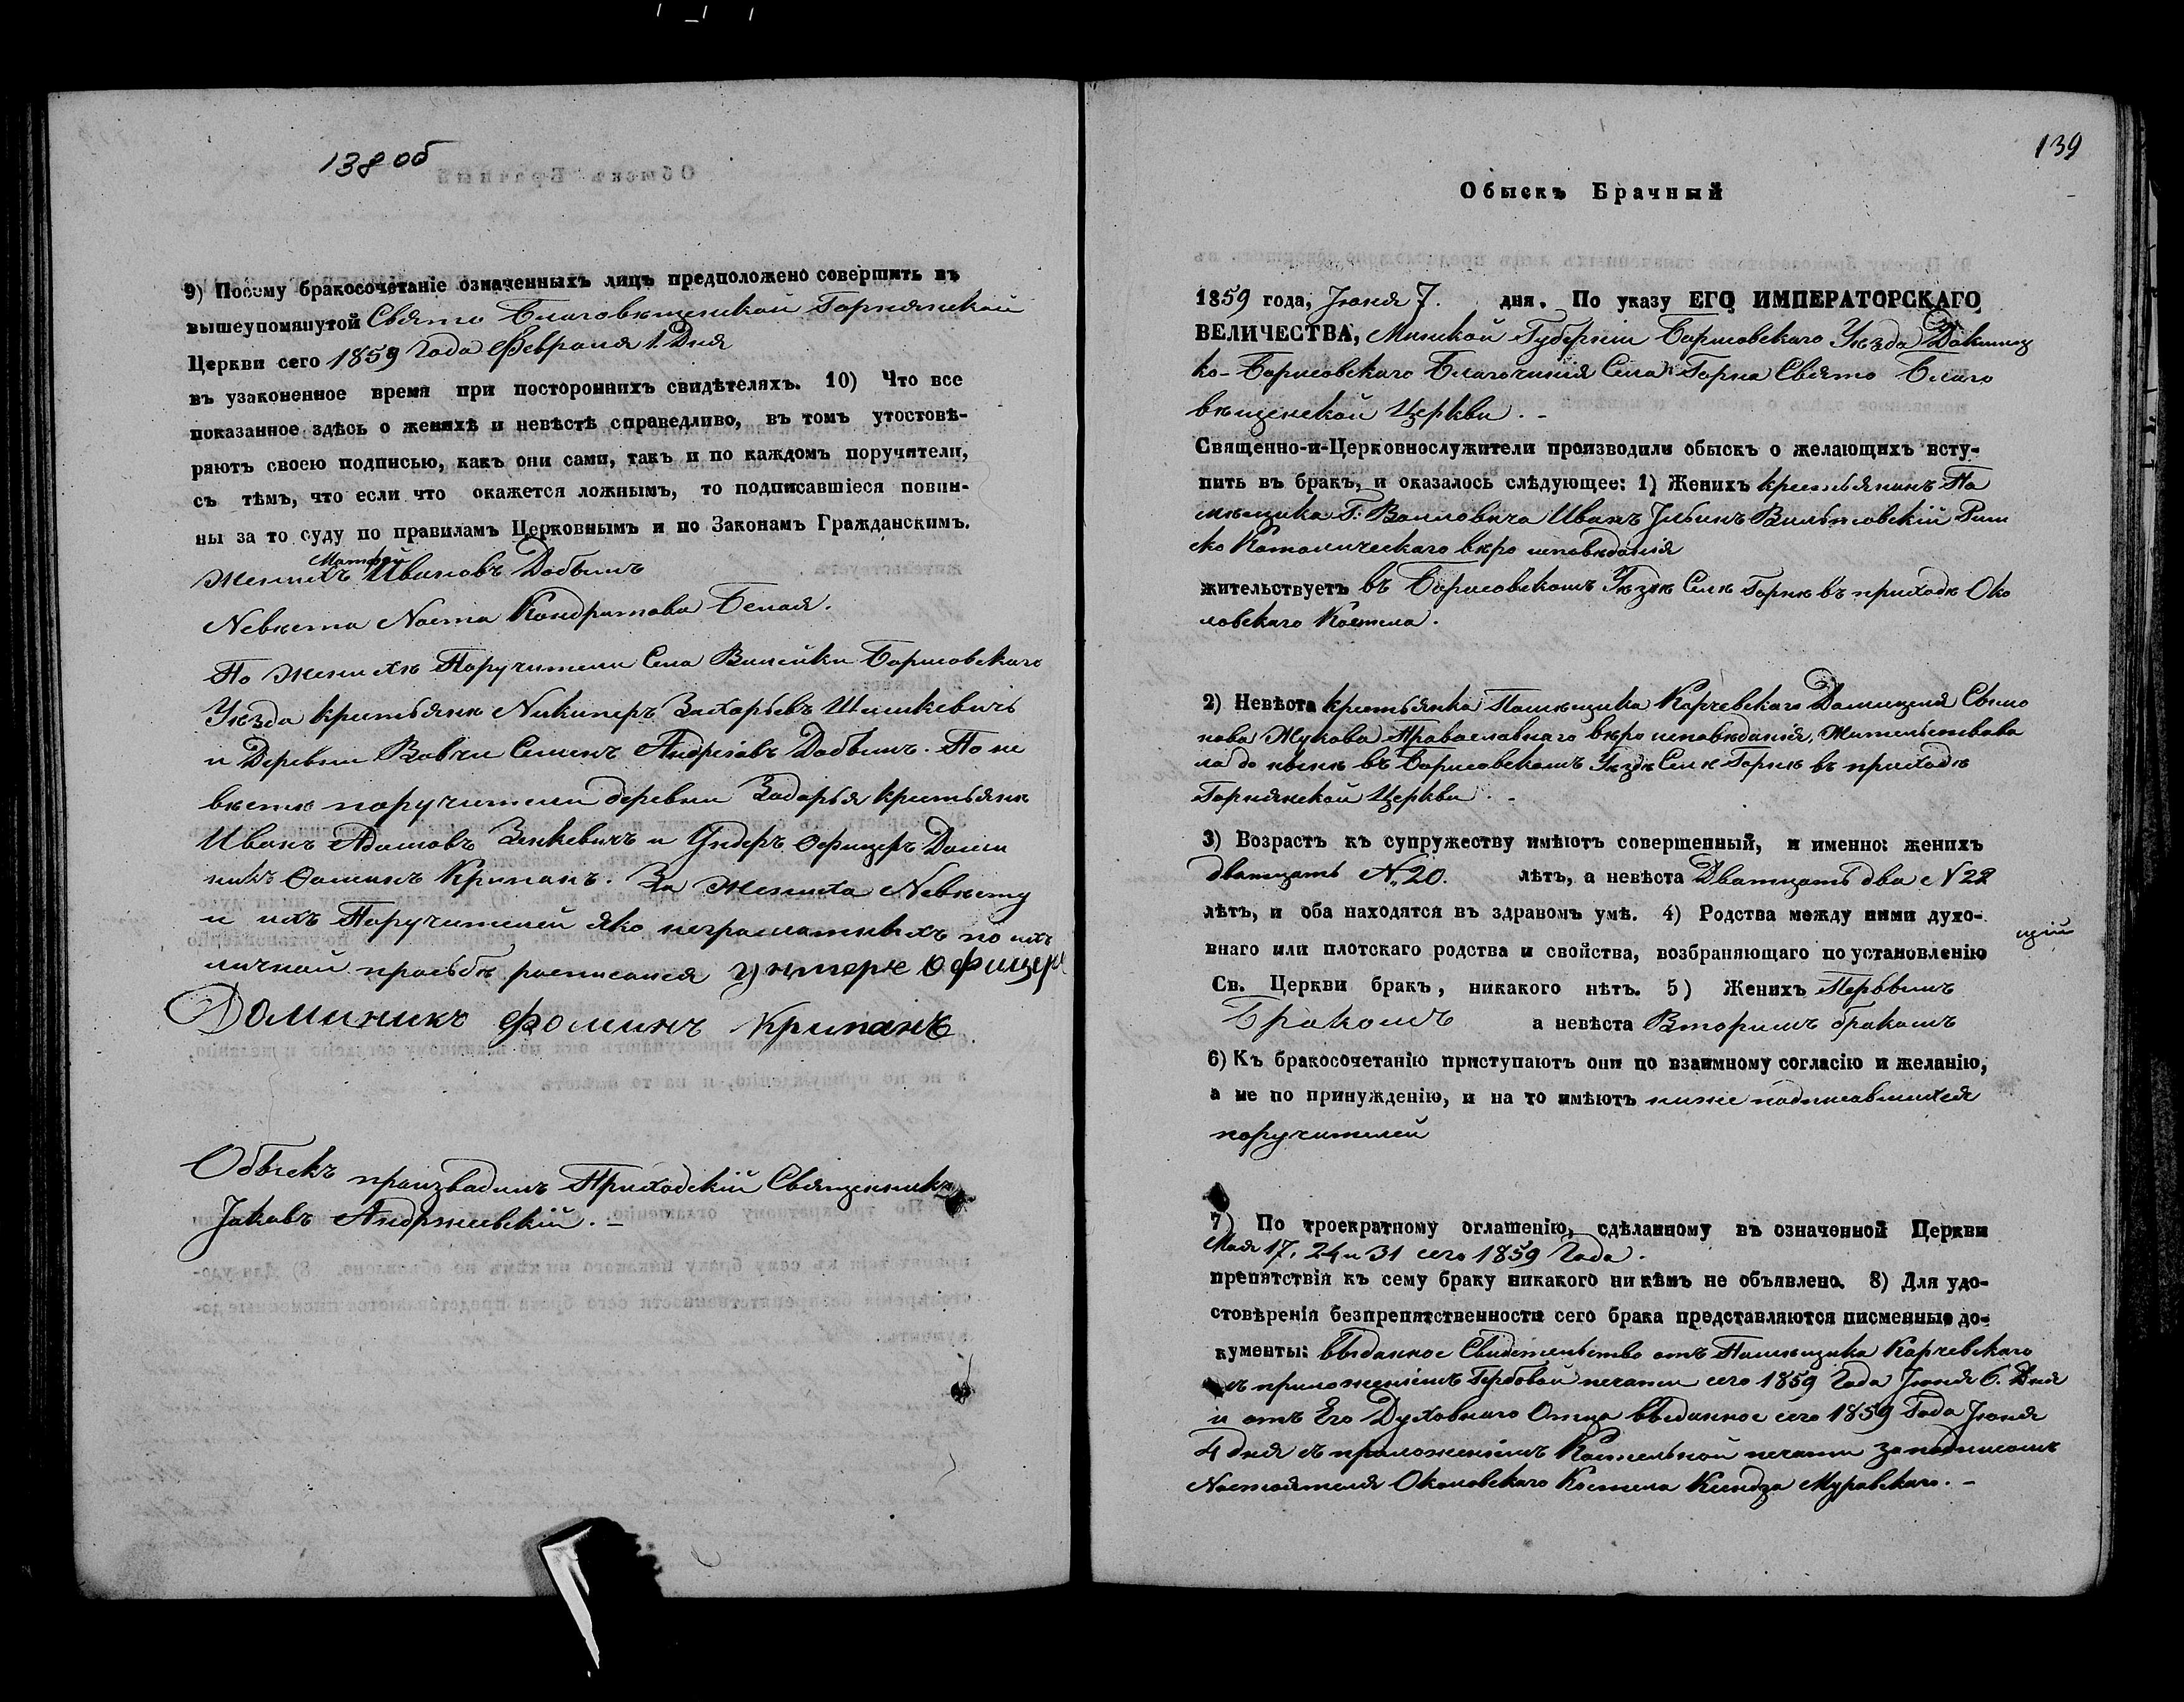 138 об
9) Посему бракосочетаніе означенныхъ лицъ предположено совершить въ
вышеупомянутой Свято Благовѣщенской Горнянской
Церкви сего 1859 Года Февраля 1. Дня
въ узаконенное время при постороннихъ свидѣтеляхъ. 10) Что все
показанное здѣсь о женихѣ и невѣстѣ справедливо, въ томъ утостовѣ-
ряютъ своею подписью, какъ они сами, такъ и по каждомъ поручители,
съ тѣмъ, что если что окажется ложнымъ, то подписавшіеся повин-
ны за то суду по правиламъ Церковнымъ и по Законамъ Гражданскимъ.
Матфей
Женихъ Ивановъ
Невѣста Кондратова Белая.
По женихѣ Поручители Села Вилейки Борисовскаго
Уѣзда крестьяне Никиперъ Захарьевъ Шишкевичь
и Деревни Семенъ Андреевъ По не
вѣсте поручители деревни крестьяне
Иванъ Адамовъ Зенкевичъ и Ундеръ Офицеръ Доми
никъ Фоминъ Крипанъ. За Жениха Невѣсту
и ихъ Поручителей яко неграмотныхъ по ихъ
личной прозьбѣ росписался унтеръ Офицеръ
Доминикъ Фоминъ Крипанъ
Обыскъ производилъ Приходскій Священникъ
Іаковъ Андржиевскій. –
139
Обыскъ Брачный
1859 года, Іюня 7. дня. По указу ЕГО ИМПЕРАТОРСКАГО
ВЕЛИЧЕСТВА, Минской Губерніи Борисовскаго Уѣзда Докшиц
ко-Борисовскаго Благочинія Села Горна Свято Благо
вѣщенской Церкви. –
Священно-и-Церковнослужители производили обыскъ о желающихъ всту-
пить въ бракъ, и оказалось слѣдующее: 1) Женихъ крестьянинъ По
мѣщика Г: Воиловича Иванъ Римс
ко Католическаго вѣро исповѣданія
жительствуетъ въ Борисовскомъ Уѣздѣ Селѣ Горнѣ въ приходѣ Око
ловскаго Костела.
2) Невѣста крестьянка Помѣщика Корчевскаго Домицеля
Жукова Православнаго вѣро исповѣданія, Жительствова
ла до нынѣ въ Борисовскомъ Уѣздѣ Селѣ Горнѣ въ приходѣ
Горнянской Церкви. –
3) Возрастъ къ супружеству имѣютъ совершенный, и именно: женихъ
дватцать N 20. лѣтъ, а невѣста Дватцать два N 22
лѣтъ, и оба находятся въ здравомъ умѣ. 4) Родства между ними духо-
внаго или плотскаго родства и свойства, возбраняющаго по установленію
Св. Церкви бракъ, никакого нѣтъ. 5) Женихъ Первымъ
Бракомъ а невѣста Вторимъ бракомъ
6) Къ бракосочетанію приступаютъ они по взаимному согласію и желанію,
а не по принужденію, и на то имѣютъ ниже подписавшихся
поручителей
7) По троекратному оглашенію, сдѣланному въ означенной Церкви
Мая 17, 24 и 31 сего 1859 Года.
препятствія къ сему браку никакого ни кѣмъ не объявлено. 8) Для удо-
стовѣренія безпрепятственности сего брака представляются писменные до-
кументы: выданное Свидетельство отъ Помѣщика Корчевскаго
съ приложеніемъ Гербовой печати сего 1859 Года Іюня 6. Дня
и отъ Его Духовнаго Отца выданное сего 1859 Года Іюня
4 дня съ приложеніемъ Костельной печати за подписомъ
Настоятеля Околовскаго Костела Ксендза Муравскаго. –